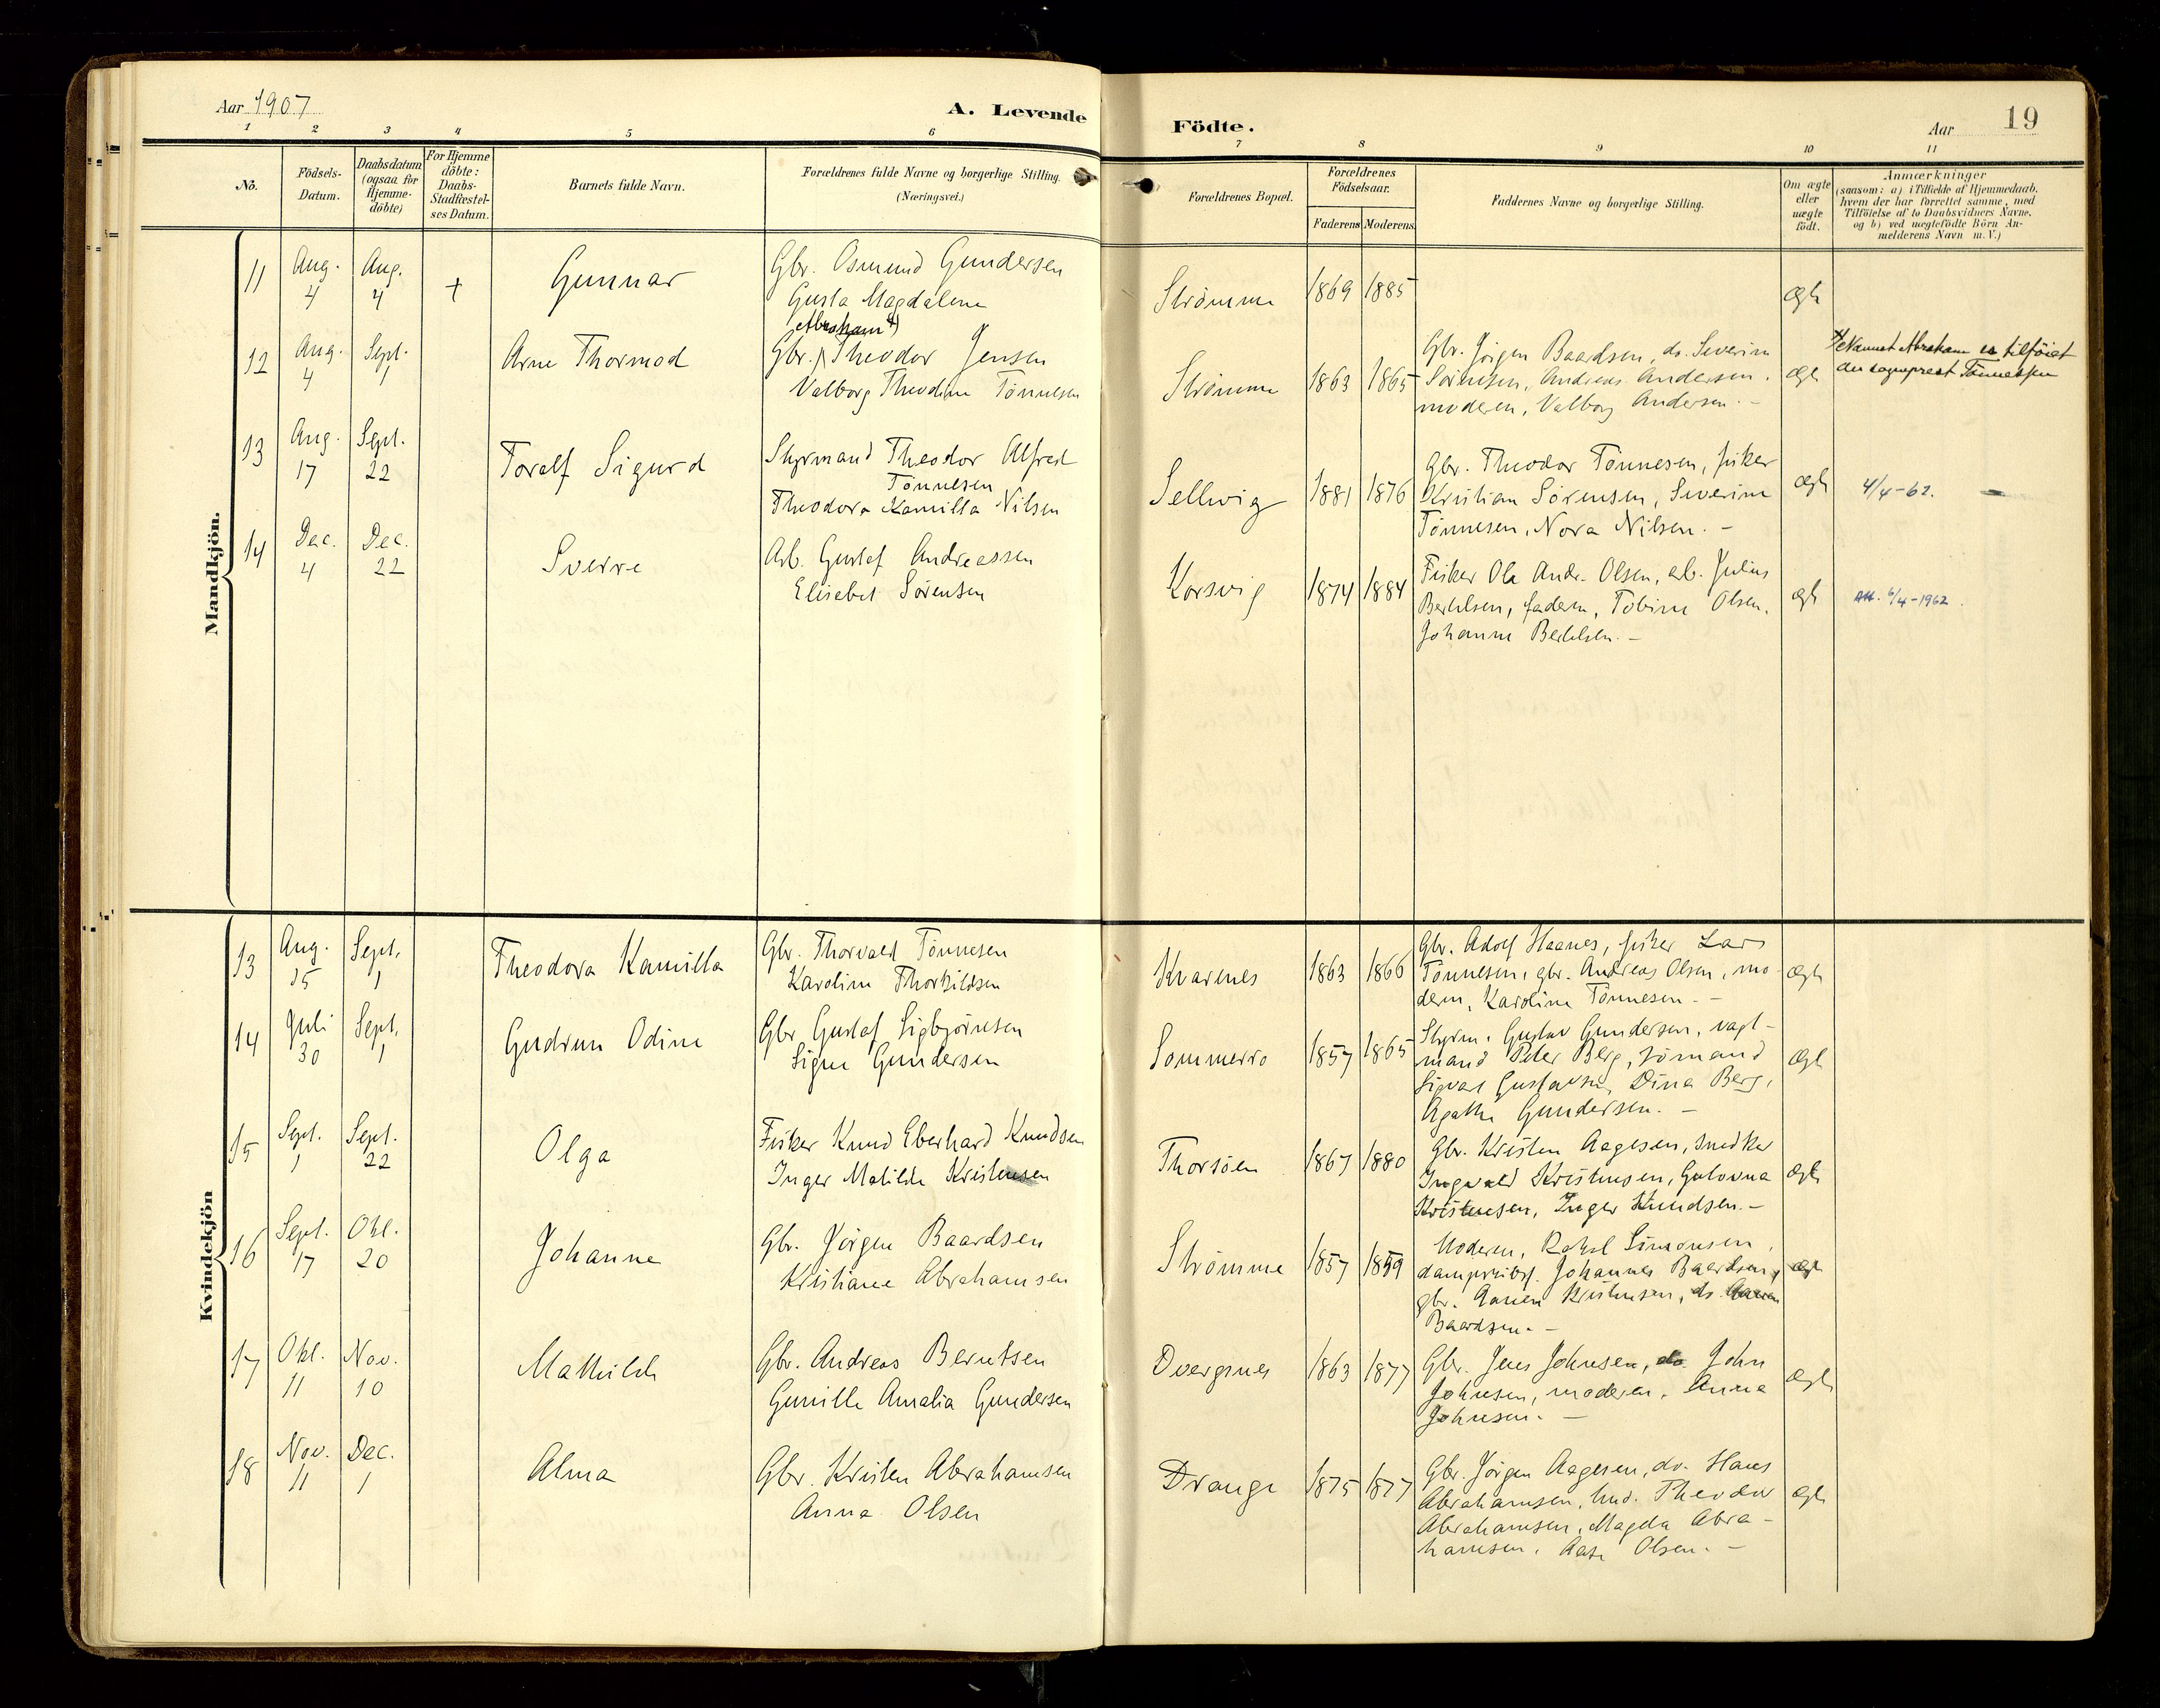 Aar 1907
A. Levende
Födte.
Aar
19
1 2 3 4 5 6
7 8 9 10 11
No.
Födsels-
Datum.
Daabsdatum
(ogsaa for
Hjemme-
döbte)
For Hjemme
döbte:
Daabs-
Stadfæstel-
ses Datum.
Barnets fulde Navn.
Forældrenes fulde Navne og borgerlige Stilling.
(Næringsvei.)
Forældrenes Bopæl.
Forældrenes
Födselsaar.
Faderens
Moderens
Faddernes Navne og borgerlige Stilling.
Om ægte
eller
uægte
födt.
Anmærkninger
(saasom: a) i Tilfælde af Hjemmedaab.
hvem der har forrettet samme, med
Tilföielse af to Daabsvidners Navne.
og b) ved uægtefödte Börn An-
melderens Navn m. V.)
Mandkjön.
11
Aug.
4
Aug.
4
+
Gunnar
Gbr. Osmund Gundersen
Gusta Magdalene
Strömme
1869
1885
ægte
12
Aug.
4
Sept.
1
Arne Thormod
Abraham +)
Gbr. Theodor Jensen
Valborg Theodine Tönnesen
Strömme
1863
1865
Gbr. Jörgen Baardsen, do. Severin
Sörensen, Andreas Andersen.
moderen, Valborg Andersen. -
ægte
+) Navnet Abraham er tilföiet
av sogneprest Tönnessen
13
Aug.
17
Sept.
22
Toralf Sigurd
Styrmand Theodor Alfred
Tönnesen
Theodora Kamilla Nilsen
Sellwig
1881
1876
Gbr. Theodor Tönnesen, fisker
Kristian Sörensen, Severine
Tönnesen, Nora Nilsen. -
ægte
4/4-62. -
14
Dec.
4
Dec.
22
Sverre
Arb. Gustaf Andreassen
Elisebet Sörensen
Korsvig
1874
1884
Fisker Ole Andr. Olsen, arb. Julius
Berthelsen, faderen, Tobine Olsen.
Johanne Berthelsen. -
ægte
Att. 6/4-1962.
Kvindekjön
13
Aug.
15
Sept.
1
Theodora Kamilla
Gbr. Thorvald Tönnesen
Karoline Thorkildsen
Kvarnes
1863
1866
Gbr. Adolf Haanes, fisker Lars
Tönnesen, gbr. Andreas Olsen, mo-
deren, Karoline Tönnesen. -
ægte
14
Juli
30
Sept.
1
Gudrun Odine
Gbr Gustaf Sigbjörnsen
Signe Gundersen
Sommerro
1857
1865
Styrm. Gustav Gundersen, vagt-
mand Peter Berg, sömand
Sigvart Gustavsen, Dina Berg,
Agathe Gundersen. -
ægte
15
Sept.
1
Sept.
22
Olga
Fisker Knud Eberhard Knudsen
Inger Matilde Kristensen
Thorsöen
1867
1880
Gbr. Kristen Aagesen, snedker
Ingvald Kristensen, Gulovna
Kristensen, Inger Knudsen. -
ægte
16
Sept.
17
Okt.
20
Johanne
Gbr. Jörgen Baardsen
Kristiane Abrahamsen
Strömme
1857
1859
Moderen, Rakel Simonsen,
Johannes Baardsen,
gbr. Aanen Kristensen, do.
Baardsen. -
ægte
17
Okt.
11
Nov.
10
Mathilde
Gbr. Andreas Berntsen
Gunille Amalia Gundersen
Dvergsnes
1863
1877
Gbr. Jens Johnsen, do. John
Johnsen, moderen. Anna
Johnsen. -
ægte
18
Nov.
11
Dec.
1
Alma
Gbr. Kristen Abrahamsen
Anna Olsen
Drange
1875
1877
Gbr. Jörgen Aagesen, do. Hans
Abrahamsen, Theodor
Abrahamsen, Magda Abra-
hamsen, Aase Olsen. -
ægte